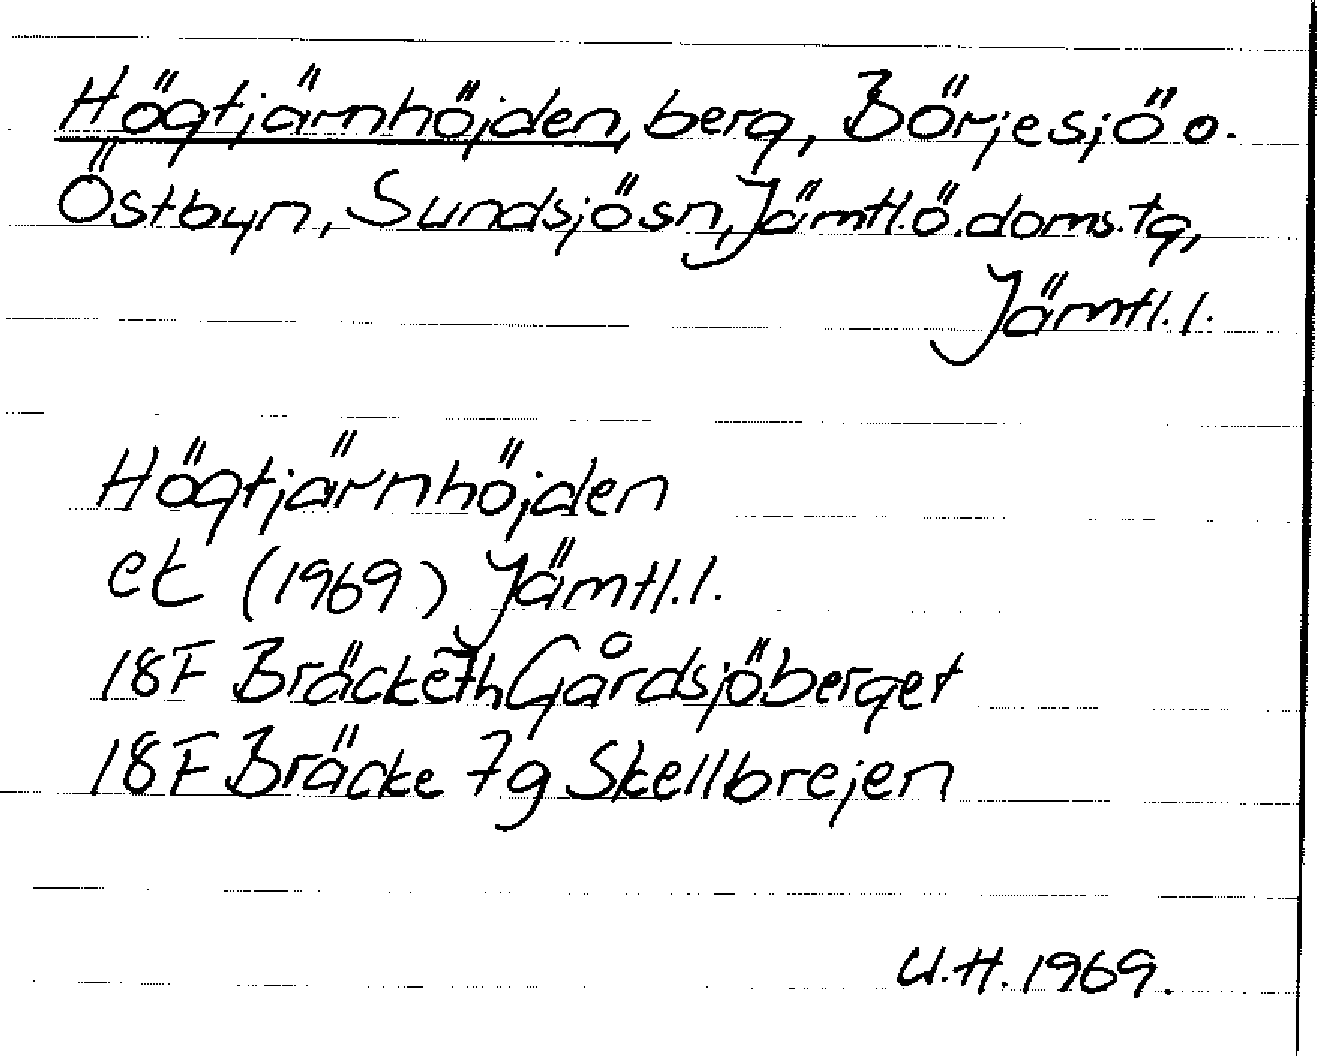 Högtjärnhöjden, berg, Börjesjö o.
Östbyn, Sundsjösn, Jämtl.ö.doms.tg,
Jämtl.l.
Högtjärnhöjden
ek (1969) Jämtl.l.
18F Bräcke 7h Gårdsjöberget
18F Bräcke 7g Skellbrejen
U.H. 1969.